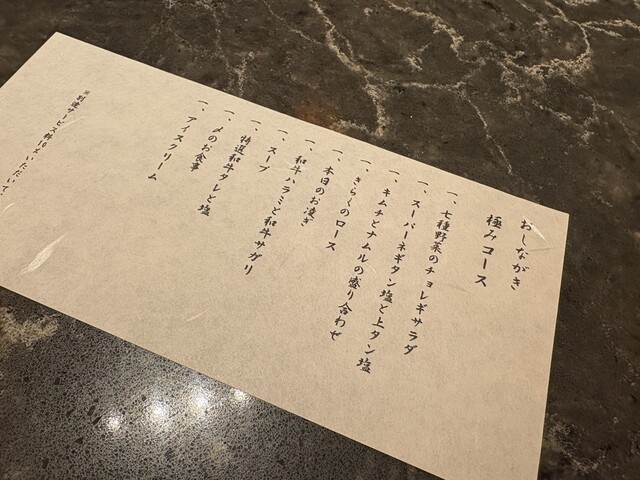 おしながき
極みコース
一、七種野菜のチョレギサラダ
一、スーパーネギタン塩と上タン塩
一、キムチとナムルの盛り合わせ
一、きらくのロース
一、本日のお凌ぎ
一、和牛ハラミと和牛サガリ
一、スープ
一、特選和牛タレと塩
一、〆のお食事
一、アイスクリーム
※別途サービス料10%いただいて